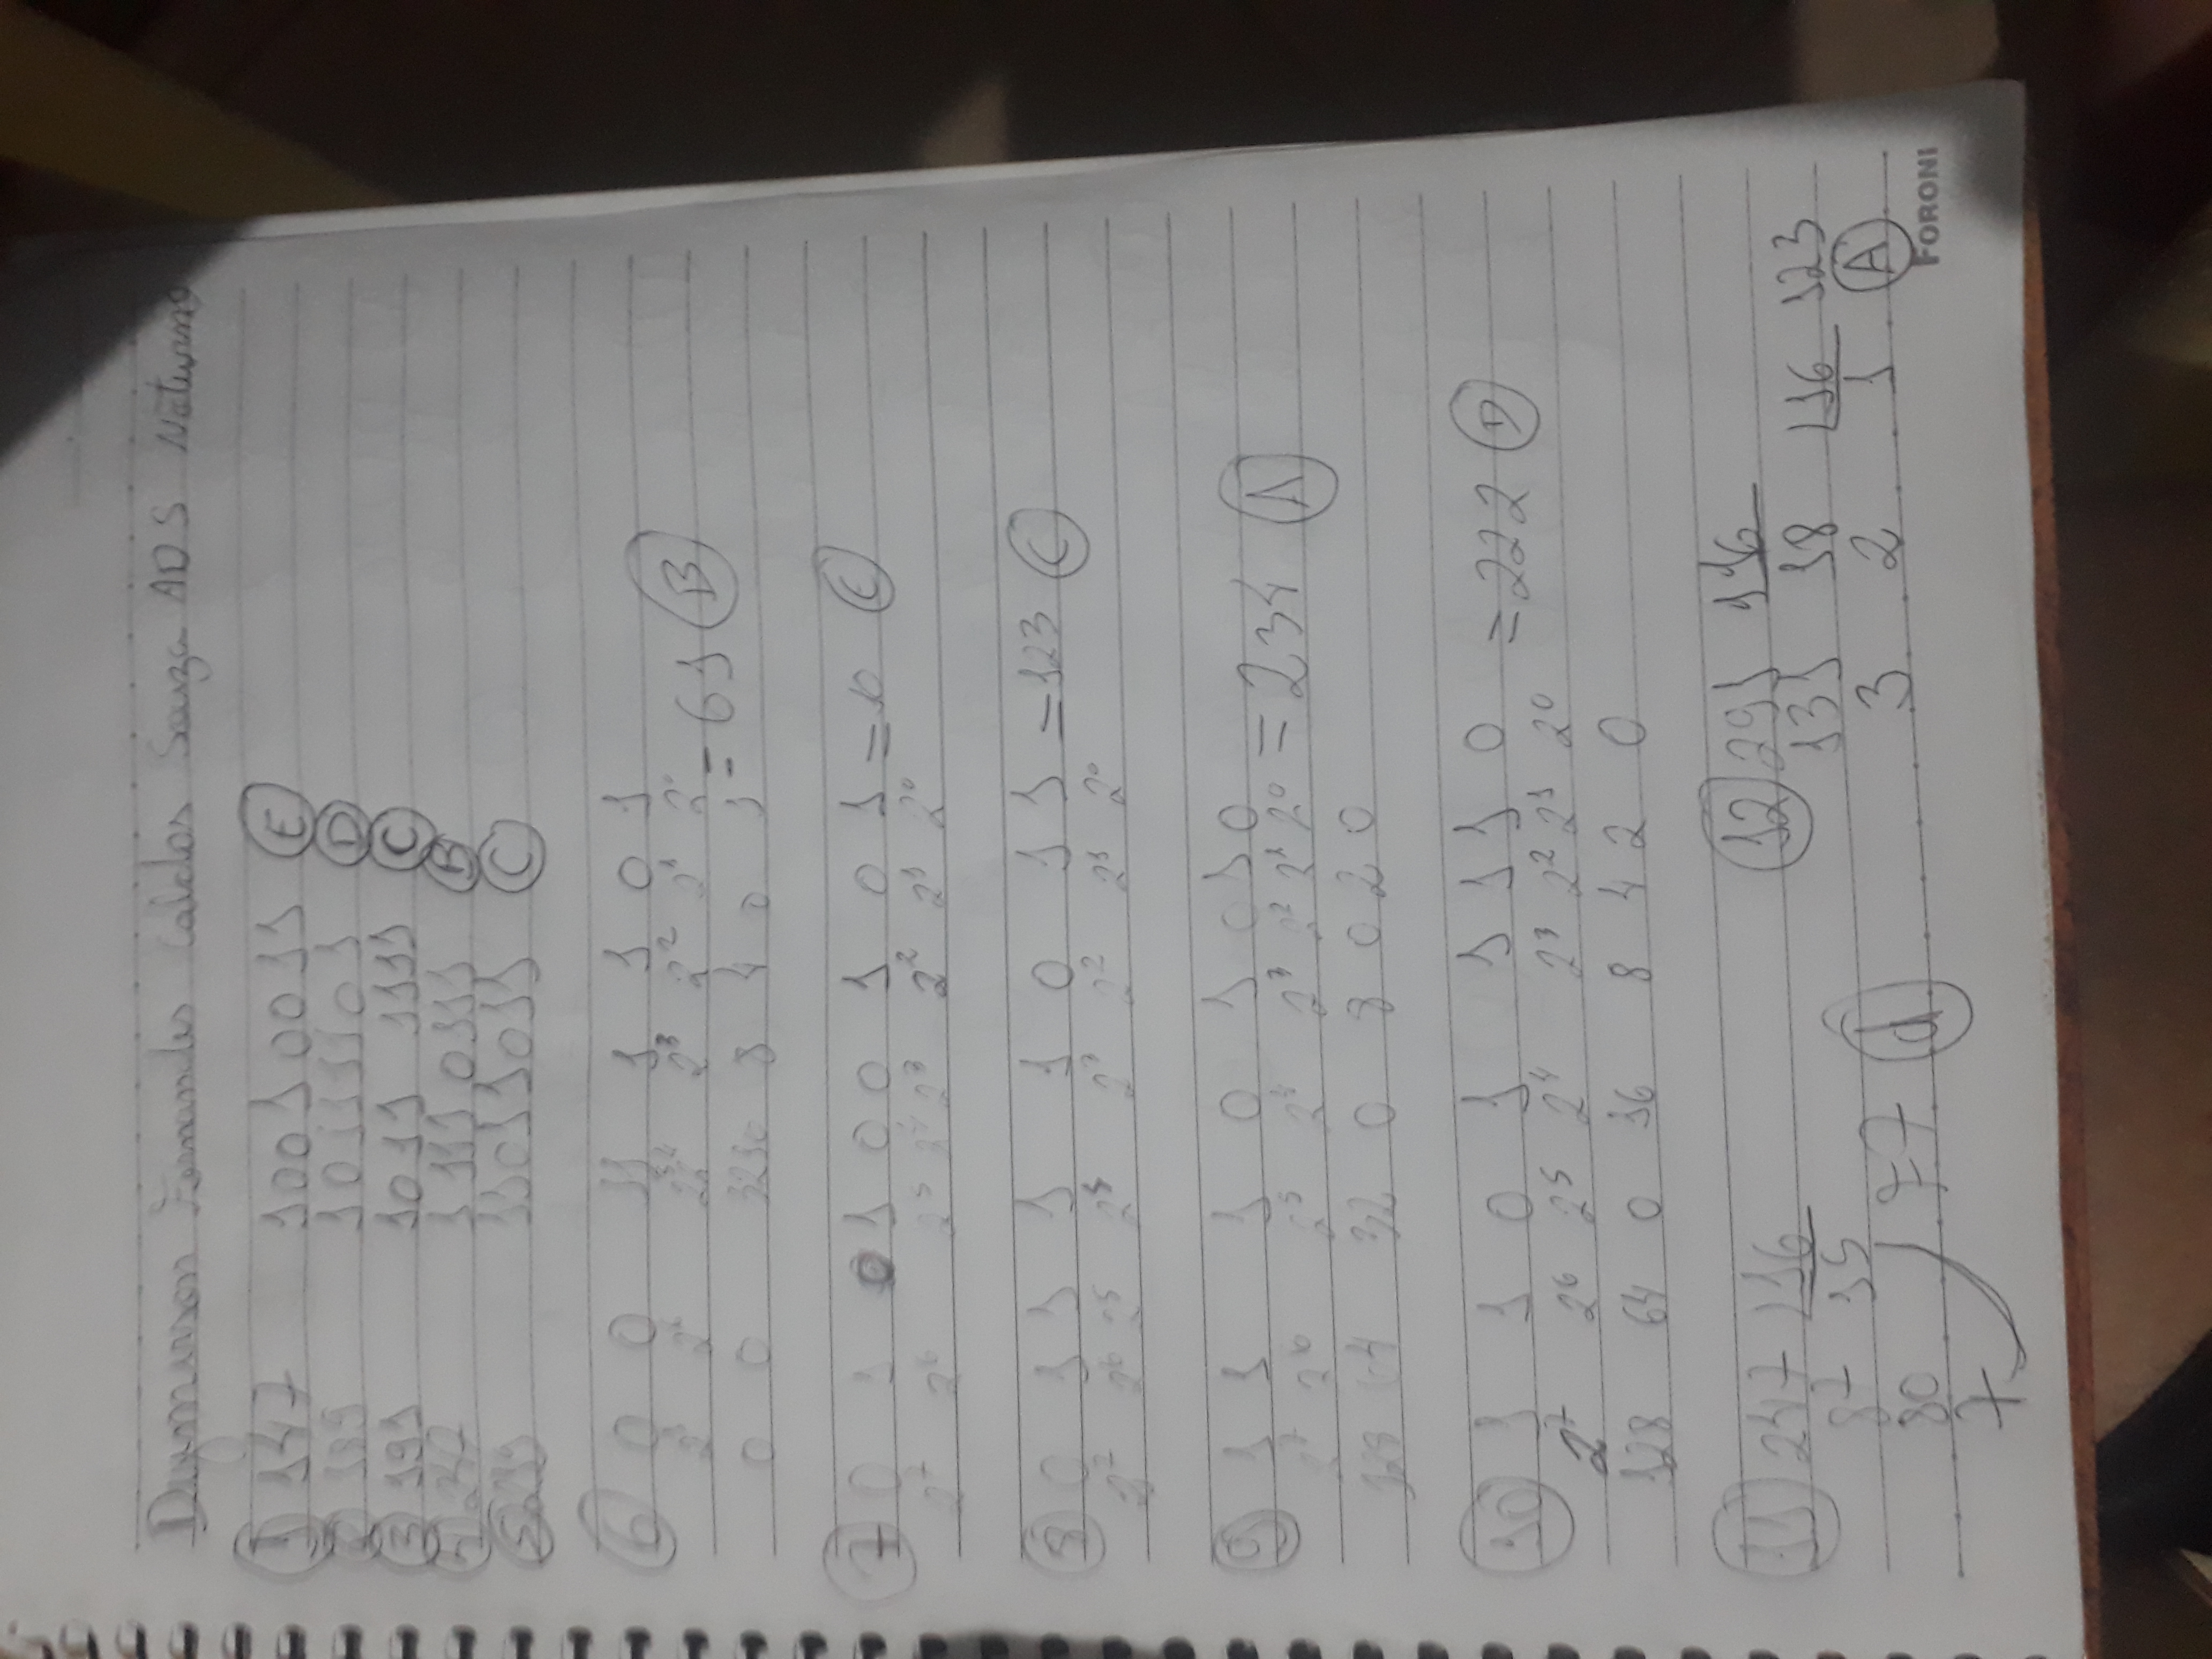 Fernandes Caldas Souza ADS Noturno
1 147 10010011 E
2 189 10111101 D
3 191 1011 1111 C
4 247 1111 0111 B
5 219 11011011 C
6 0 0 11 1 1 0 1
2² 2¹ 2⁰
= 61 B
0 0 8 4 0 1
7 0 1 0 1 0 0 1 0 1 = C
2⁷ 2⁶ 2⁵ 2⁴ 2³ 2² 2¹ 2⁰
8 0 1 1 1 1 0 1 1 = 123 C
2⁷ 2⁶ 2⁵ 2³ 2² 2¹ 2⁰
9 1 1 1 0 1 0 1 0
2⁷ 2⁶ 2⁵ 2⁴ 2³ 2² 2¹ 2⁰ = 234 A
128 64 32 0 8 0 2 0
10 1 1 0 1 1 1 1 0 = 222 D
2⁷ 2⁶ 2⁵ 2⁴ 2³ 2² 2¹ 2⁰
128 64 0 16 8 4 2 0
11 247 16
87 15
80
7
F7 d
12 291 16
131 18 16 123
3 2 1 A
FORONI